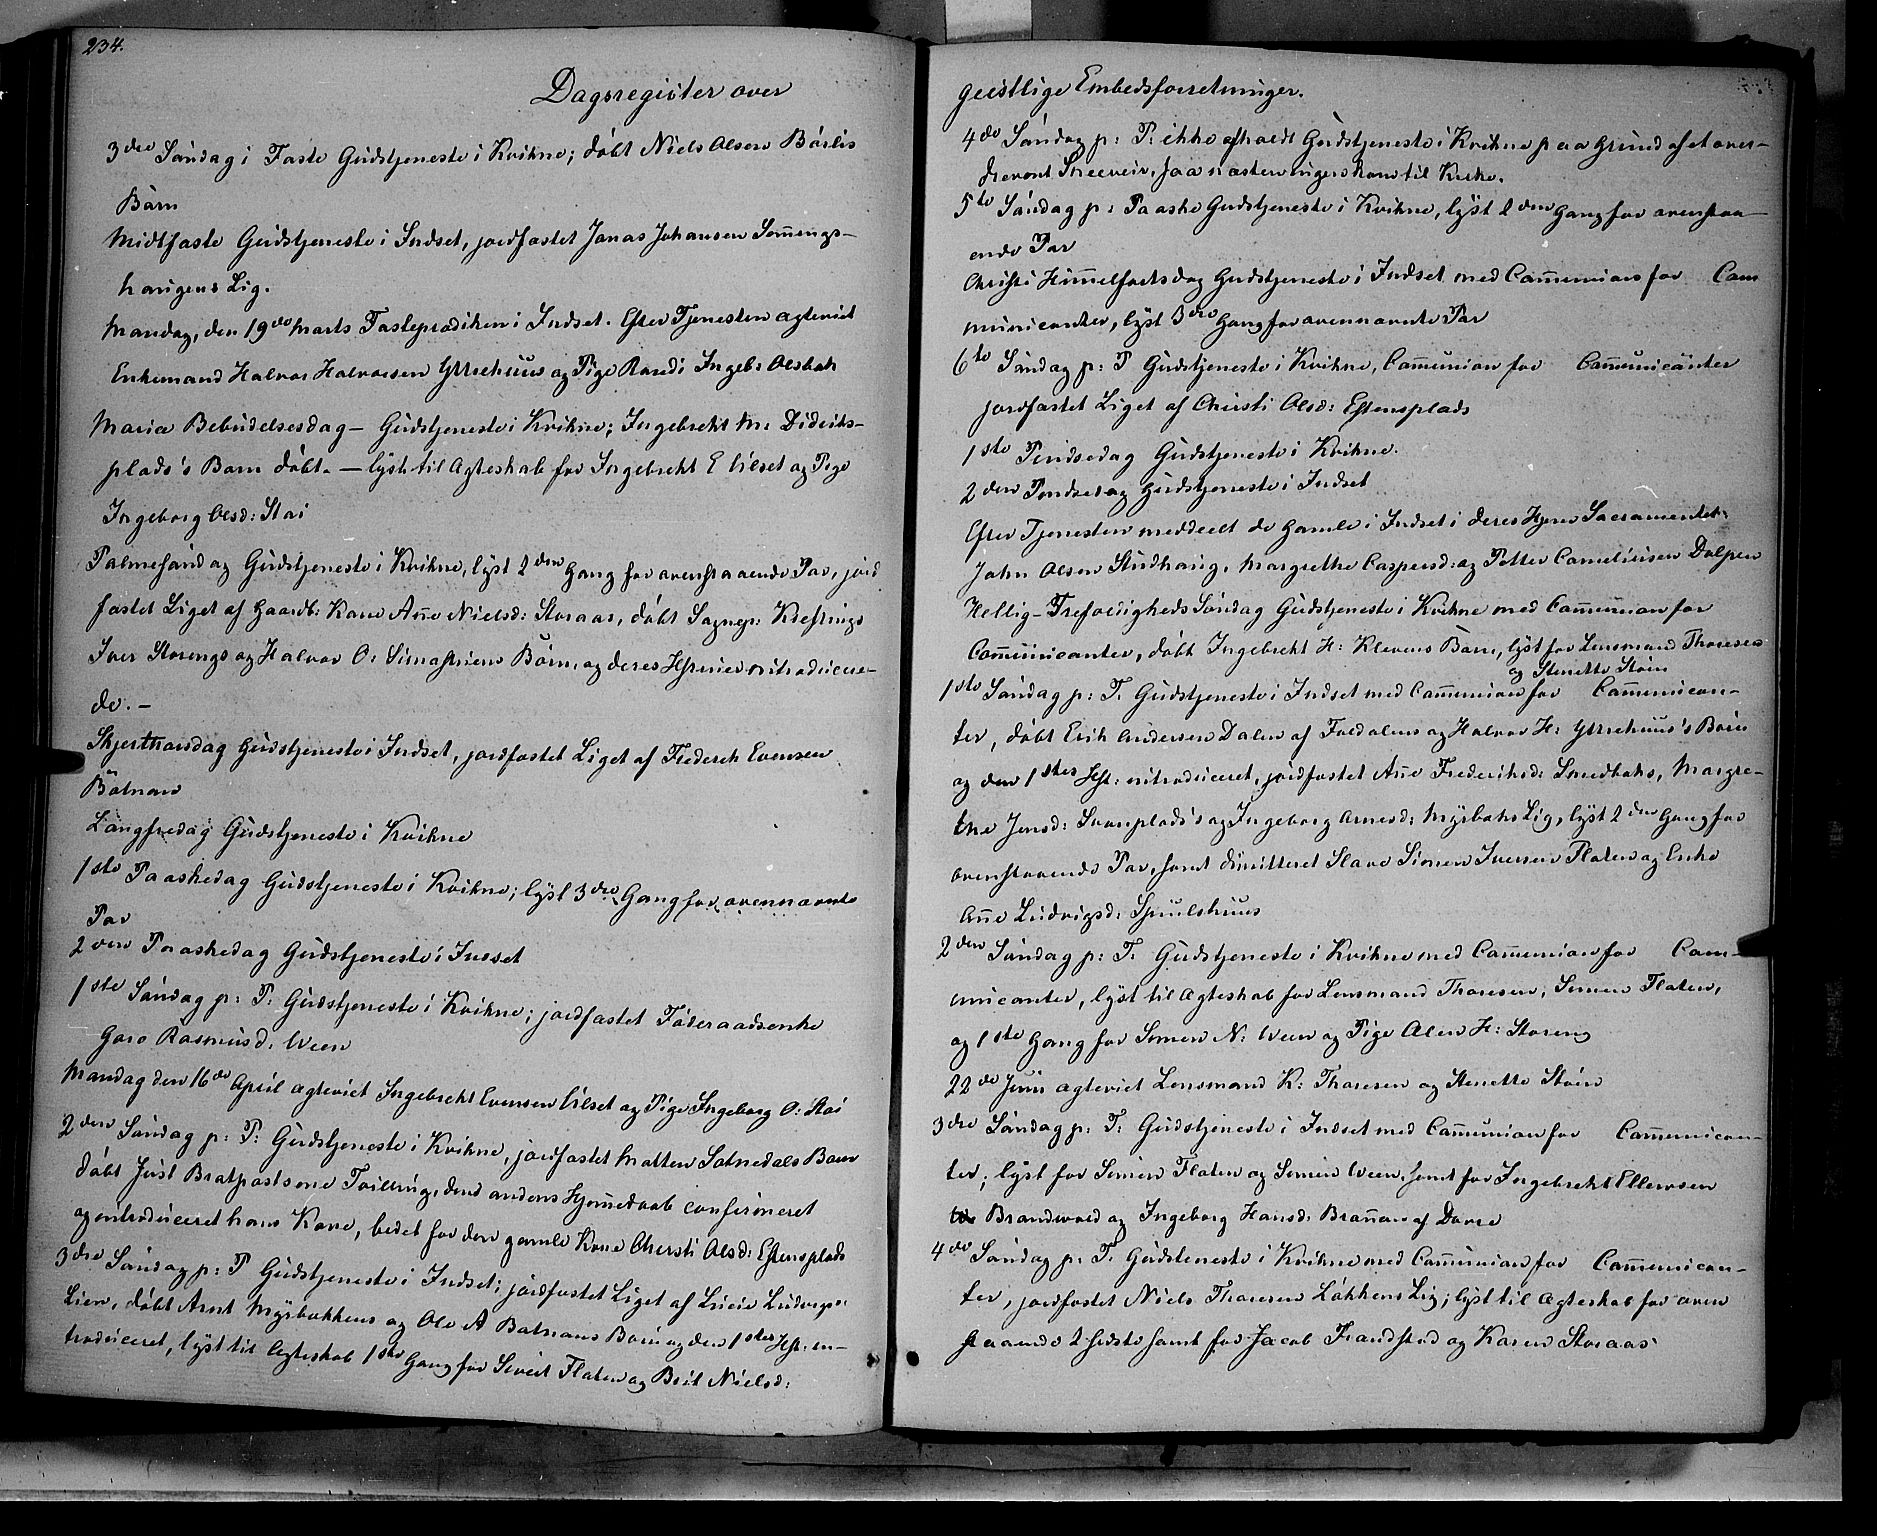 234.
Dagsregister over
3die Søndag i Faste Gudstjeneste i Kvikne; døbt Niels Olsen Børlis
Barn
Midtfaste Gudstjeneste i Indset, jordfæstet Jonas Johansen
haugens Lig.
Mandag, den 19de Marts Fasteprædiken i Indset. Efter Tjenesten ægteviet
Enkemand Halvor Halvorsen Yttrehuus og Pige Randi Ingeb: Olsbak
Mariæ Bebudelsesdag – Gudstjeneste i Kvikne; Ingebrekt M: Didriks-
plads's Barn døbt. – lyst til Ægteskab for Ingebrekt E Lilset og Pige
Ingeborg Olsd: Stai
Palmesøndag Gudstjeneste i Kvikne, lyst 2den Gang for ovenstaaende Par, jord
fæstet Liget af Gaardb: Kone Ane Nielsd: Storaas, døbt
Iver Storengs og Halvor O: Børn, og deres Hustruer introducere-
de. –
Skjerthorsdag Gudstjeneste i Indset, jordfæstet Liget af Frederik Evensen
Bøtnan
Langfredag Gudstjeneste i Kvikne
1ste Paaskedag Gudstjeneste i Kvikne; lyst 3die Gang for ovennævnte
Par
2den Paaskedag Gudstjeneste i Indset
1ste Søndag p: P: Gudstjeneste i Kvikne; jordfæstet Føderaadsenke
Goro Rasmusd: Veen
Mandag den 16de April ægteviet Ingebrekt Evensen Lilset og Pige Ingeborg O: Stai
2den Søndag p: P: Gudstjeneste i Kvikne, jordfæstet Morten Satnedals Barn
døbt Just Tvilling, dend andens Hjemmedaab confirmeret
og introduceret hans Kone, bedet for den gamle Kone Chersti Olsd: Estensplads
3die Søndag p: P Gudstjeneste i Indset; jordfæstet Liget af Lucie Ludvigs:
Lien, døbt Arnt Myrbakkens og Ole A Batnans Børn og den 1stes Hst: in-
troduceret, lyst til Ægteskab 1ste Gang for Sivert Flaten og Brit Nielsd:
geistlige Embedsforretninger.
4de Søndag p: P. ikke afholdt Gudstjeneste i Kvikne paa Grund af et over-
drevent Sneeveir, saa næsten Ingen kom til Kirke.
5te Søndag p: Paaske Gudstjeneste i Kvikne, lyst 2den Gang for ovenstaa-
ende Par
Christi Himmelfartsdag Gudstjeneste i Indset med Communion for Com
municanter, lyst 3die Gang for ovennævnte Par
6te Søndag p: P Gudstjeneste i Kvikne, Communion for Communicanter
jordfæstet Liget af Chersti Olsd: Estensplads
1ste Pindsedag Gudstjeneste i Kvikne.
2den Pindsedag Gudstjeneste i Indset
Efter Tjenesten meddeelt de Gamle i Indset i deres Hjem Sacramentet.
John Olsen Studhaug, Margrethe Caspersd: og Petter Corneliusen Dalpen
Hellig-Trefoldigheds Søndag Gudstjeneste i Kvikne med Communion for
Communicanter, døbt Ingebrekt H: Klevens Barn, lyst for Lensmand Thoresen
og Stenette Støen
1ste Søndag p: T. Gudstjeneste i Indset med Communion for Communican-
ter, døbt Erik Andersen Dalen af Foldalens og Halvor H: Yttrehuus's Børn
og den 1stes Hst: introduceret, jordfæstet Ane Frederiksd: Smedbaks, Margre-
the Jensd: Svenplads's og Ingeborg Arnesd: Myrbaks Lig, lyst 2den Gang for
ovenstaaende Par, samt dimitteret Slave Simen Iversen Flaten og Enke
Ane Ludvigsd: Sjuulshuus
2den Søndag p: T. Gudstjeneste i Kvikne med Communion for Com-
municanter, lyst til Ægteskab for Lensmand Thoresen, Simen Flaten,
og 1ste Gang for Simen N: Veen og Pige Olen H: Storeng
22de Juni ægteviet Lensmand K: Thoresen og Stenette Støen
3die Søndag p: T. Gudstjeneste i Indset med Communion for Communican-
ter; lyst for Simen Flaten og Simen Veen, samt for Ingebrekt Ellevsen
Brandvold og Ingeborg Hansd: Brannan af Dovre
4de Søndag p: T. Gudsteneste i Kvikne med Communion for Communican-
ter, jordfæstet Niels Thoresen Løkkens Lig; lyst til Ægteskab for oven
staaende 2 sidste samt for Jacob Frandstad og Karen Storaas